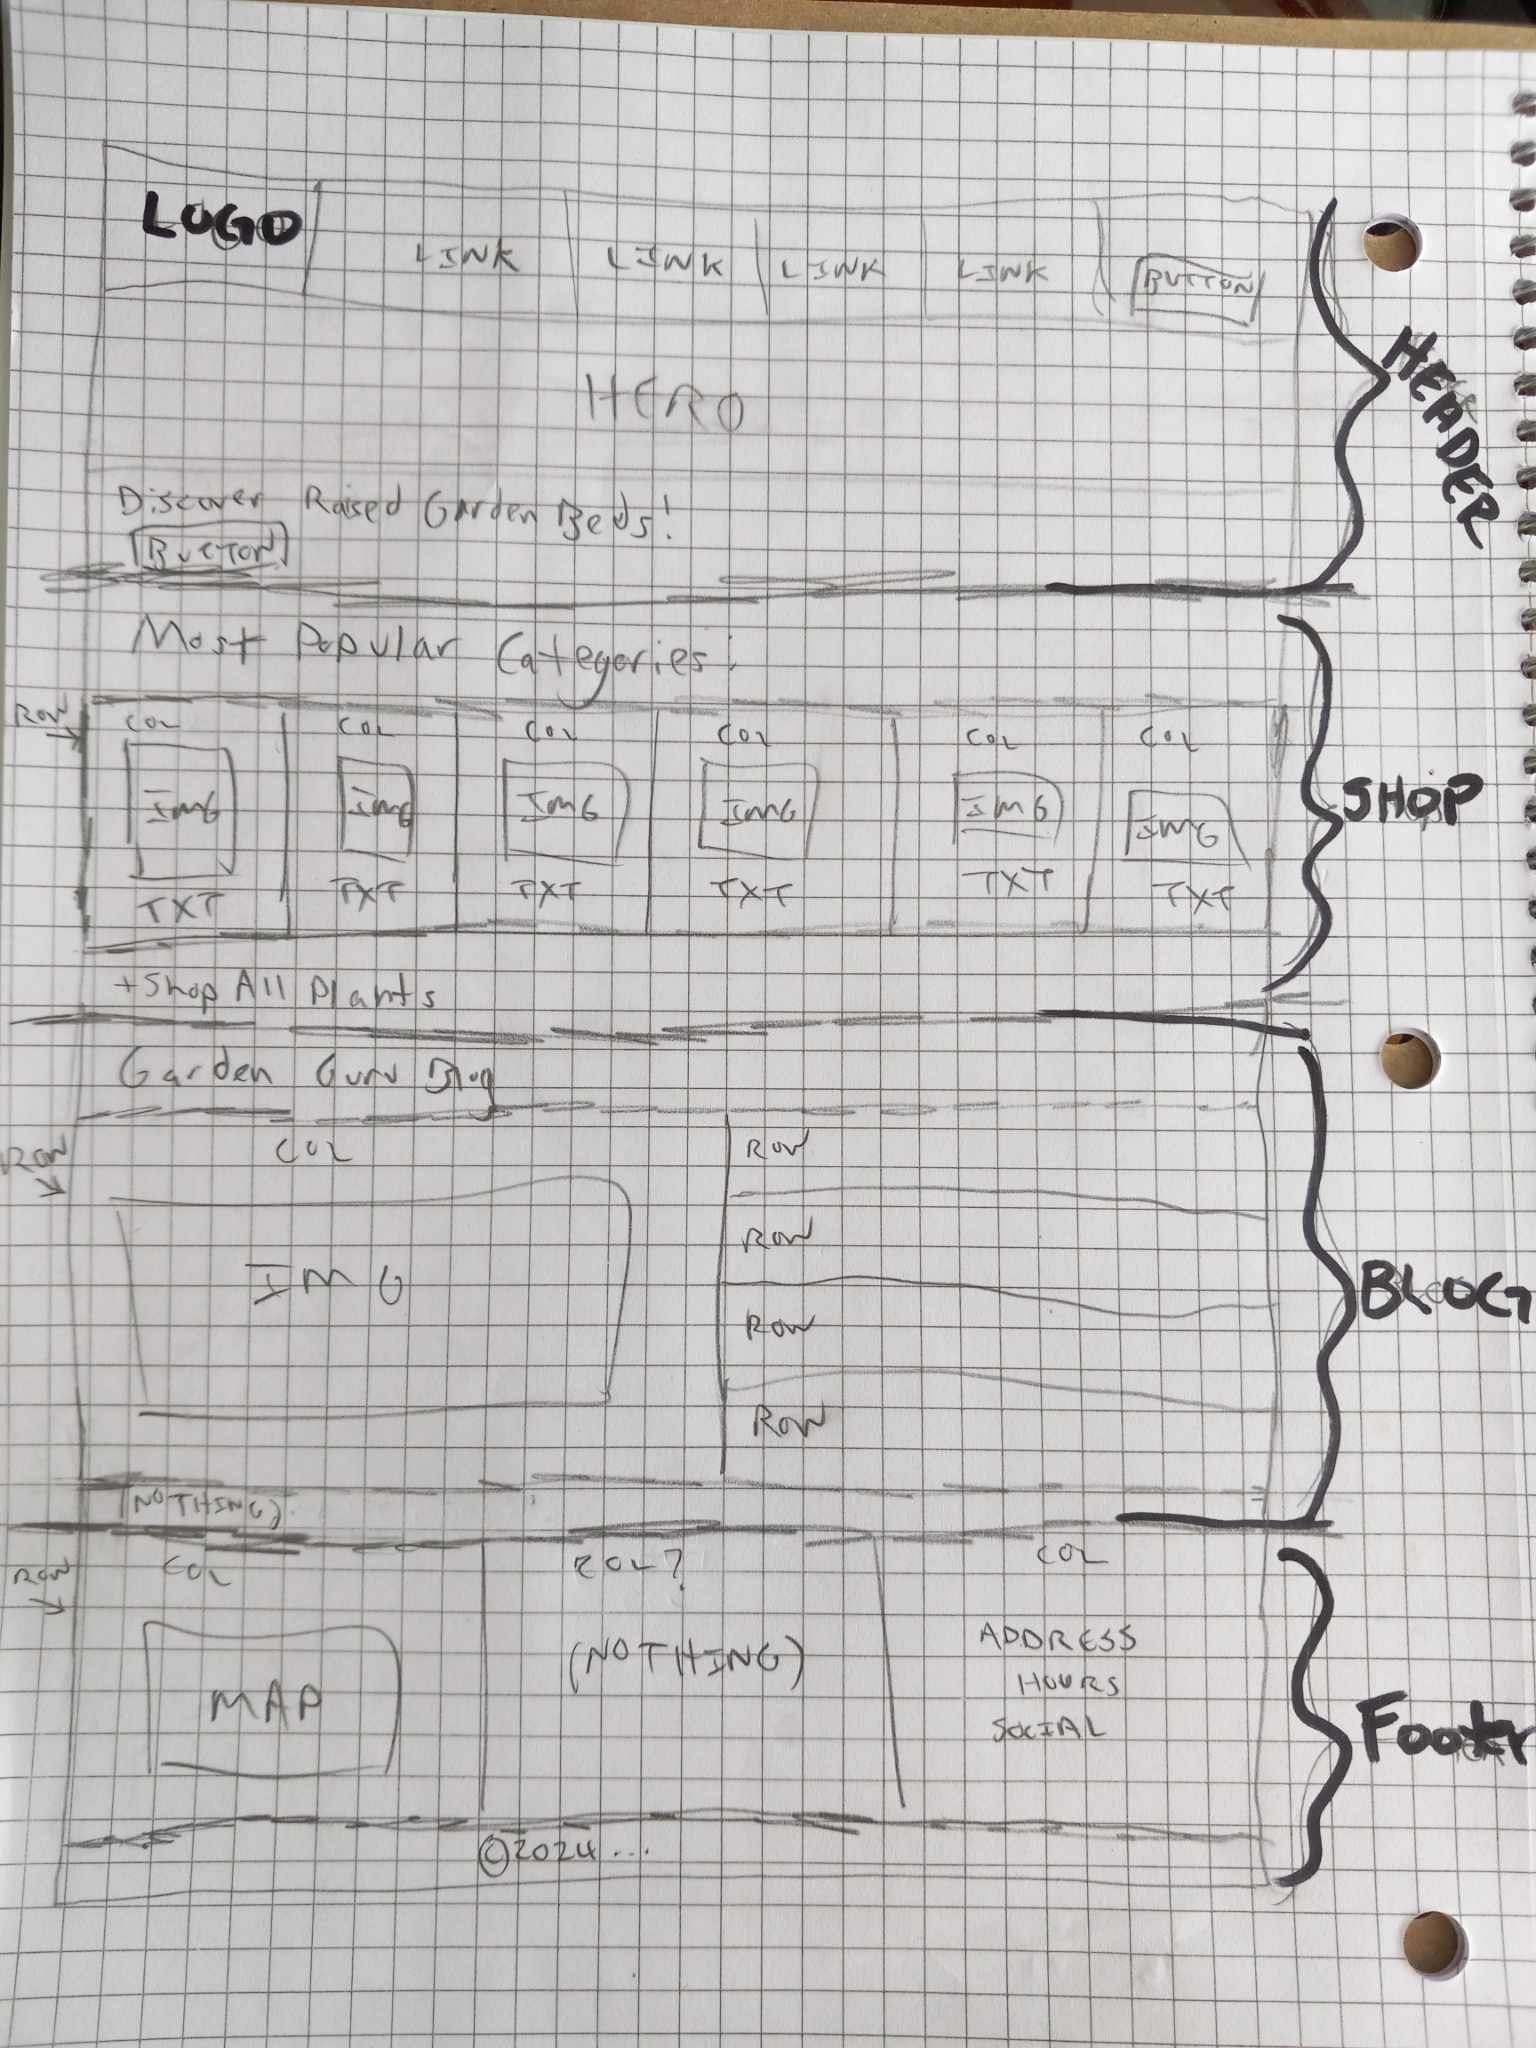 LOGO LINK LINK LINK LINK BUTTON
HERO
HEADER
Discover Raised Garden Beds!
BUTTON
Most Popular Categories:
ROW
COL COL COL COL COL COL
IMG IMG IMG IMG IMG IMG
TXT TXT TXT TXT TXT TXT
SHOP
+Shop All Plants
Garden Guru Blog
ROW
COL
IMG
ROW
ROW
ROW
ROW
BLOG
(NOTHING)
ROW
COL COL? COL
MAP
(NOTHING)
ADDRESS
HOURS
SOCIAL
Footer
©2024...